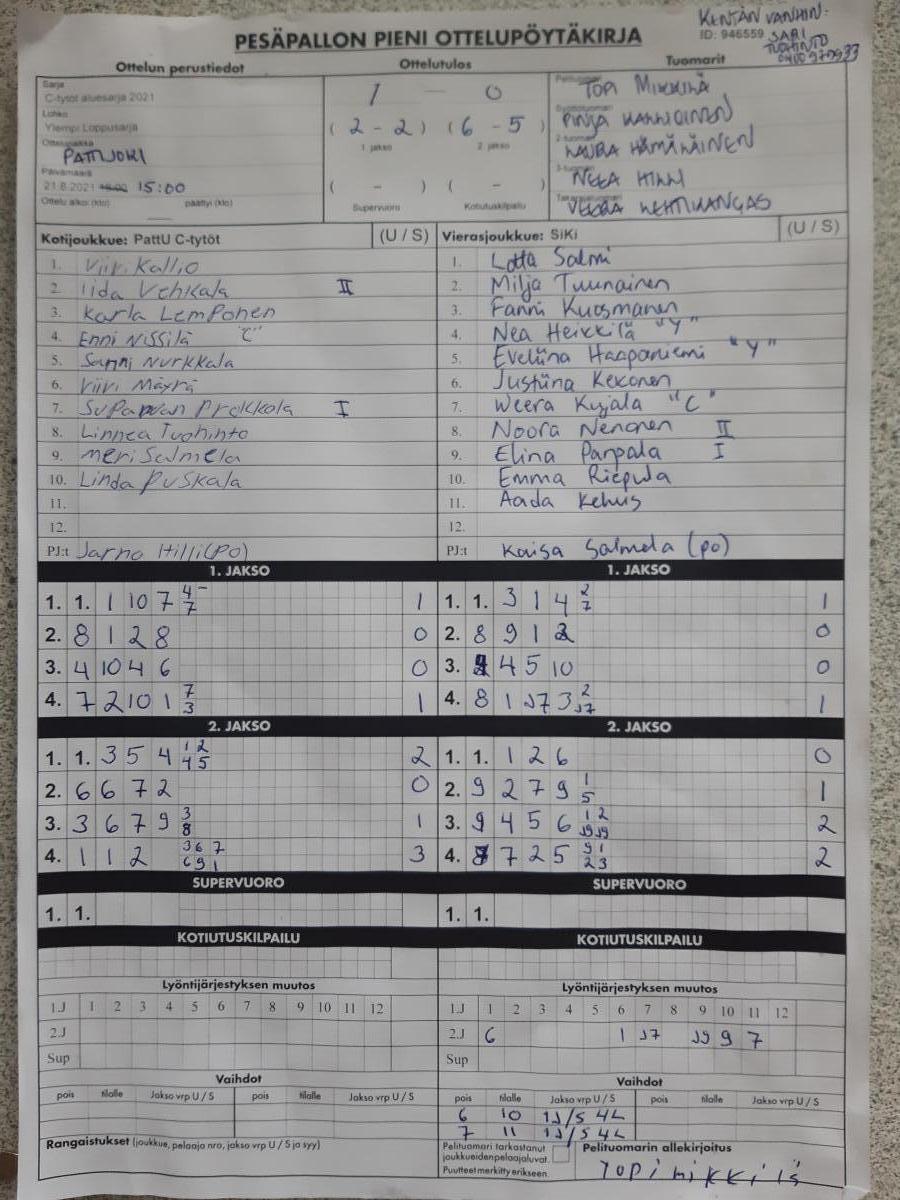 KENTÄN VANHIN:
ID: 946559 SARI
TUOHINTO
PESÄPALLON PIENI OTTELUPÖYTÄKIRJA
Ottelun perustiedot Ottelutulos Tuomarit
Sarja
C-tytöt aluesarja 2021 1 – 0 Pelituomari TOPI MIKKILÄ
Lohko
Ylempi Loppusarja ( 2 - 2 ) ( 6 - 5 ) PINJA
1. jakso 2. jakso
Ottelupaikka
PATTIJOKI 2-tuomari LAURA HÄMÄLÄINEN
Päivämäärä
21.8.2021 18:00 15:00 ( - ) ( - ) 3-tuomari NEEA HILLI
Ottelu alkoi (klo) päättyi (klo) Supervuoro Kotiutuskilpailu VEERA LEHTIKANGAS
Kotijoukkue: PattU C-tytöt (U / S) Vierasjoukkue: SiKi (U / S)
1. Viivi Kallio 1. Lotta Salmi
2. Iida Vehkala II 2. Milja Tuunainen
3. Karla Lemponen 3. Fanni Kuosmanen
4. Enni Nissilä "C" 4. Nea Heikkilä "Y"
5. Sanni Nurkkala 5. Eveliina Haapaniemi "Y"
6. Viivi Mäyrä 6. Justiina Kekonen
7. Prokkola I 7. Weera Kujala "C"
8. Linnea Tuohinto 8. Noora Nenonen II
9. Meri Salmela 9. Elina Panpala I
10. Linda Puskala 10. Emma Riepula
11. 11. Aada Kehus
12. 12.
PJ:t Jarno Hilli (PO) PJ:t Kaisa Salmela (po)
1. JAKSO 1. JAKSO
1. 1. 1 10 7 4 – 7 1 1. 1. 3 1 4 2 7 1
2. 8 1 2 8 0 2. 8 9 1 2 0
3. 4 10 4 6 0 3. 4 5 10 0
4. 7 2 10 1 7 3 1 4. 8 1 J7 3 2 J7 1
2. JAKSO 2. JAKSO
1. 1. 3 5 4 1 2 4 5 2 1. 1. 1 2 6 0
2. 6 6 7 2 0 2. 9 2 7 9 1 5 1
3. 3 6 7 9 3 8 1 3. 9 4 5 6 1 2 J9 J9 2
4. 1 1 2 3 6 7 6 9 1 3 4. 7 2 5 9 1 2 3 2
SUPERVUORO SUPERVUORO
1. 1. 1. 1.
KOTIUTUSKILPAILU KOTIUTUSKILPAILU
Lyöntijärjestyksen muutos Lyöntijärjestyksen muutos
1.J 1 2 3 4 5 6 7 8 9 10 11 12 1.J 1 2 3 4 5 6 7 8 9 10 11 12
2.J 2.J 6 1 J7 J9 9 7
Sup Sup
Vaihdot Vaihdot
pois tilalle Jakso vrp U / S pois tilalle Jakso vrp U / S pois tilalle Jakso vrp U / S pois tilalle Jakso vrp U / S
6 10 1J/S 4L
7 11 1J/S 4L
Rangaistukset (joukkue, pelaaja nro, jakso vrp U / S ja syy) Pelituomari tarkastanut Pelituomarin allekirjoitus
joukkueidenpelaajaluvat.
Puutteet merkitty erikseen. Topi Mikkilä